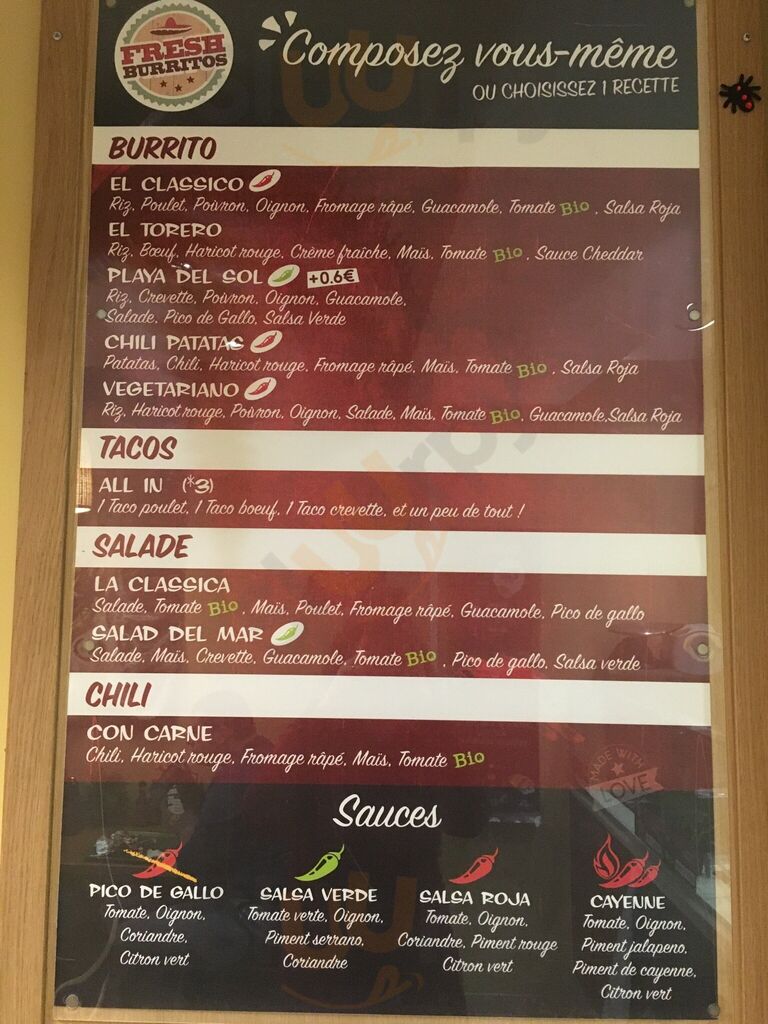 FRESH
BURRITOS
Composez vous-même
OU CHOISISSEZ 1 RECETTE
BURRITO
EL CLASSICO
Riz, Poulet, Poivron, Oignon, Fromage râpé, Guacamole, Tomate Bio , Salsa Roja
EL TORERO
Riz, Bœuf, Haricot rouge, Crème fraîche, Maïs, Tomate Bio , Sauce Cheddar
PLAYA DEL SOL +0.6€
Riz, Crevette, Poivron, Oignon, Guacamole,
Salade, Pico de Gallo, Salsa Verde
CHILI PATATAS
Patatas, Chili, Haricot rouge, Fromage râpé, Maïs, Tomate Bio , Salsa Roja
VEGETARIANO
Riz, Haricot rouge, Poivron, Oignon, Salade, Maïs, Tomate Bio, Guacamole,Salsa Roja
TACOS
ALL IN (*3)
1 Taco poulet, 1 Taco boeuf, 1 Taco crevette, et un peu de tout !
SALADE
LA CLASSICA
Salade, Tomate Bio , Maïs, Poulet, Fromage râpé, Guacamole, Pico de gallo
SALAD DEL MAR
Salade, Maïs, Crevette, Guacamole, Tomate Bio , Pico de gallo, Salsa verde
CHILI
CON CARNE
Chili, Haricot rouge, Fromage râpé, Maïs, Tomate Bio
MADE WITH
LOVE
Sauces
PICO DE GALLO
Tomate, Oignon,
Coriandre,
Citron vert
SALSA VERDE
Tomate verte, Oignon,
Piment serrano,
Coriandre
SALSA ROJA
Tomate, Oignon,
Coriandre, Piment rouge
Citron vert
CAYENNE
Tomate, Oignon,
Piment jalapeno,
Piment de cayenne,
Citron vert